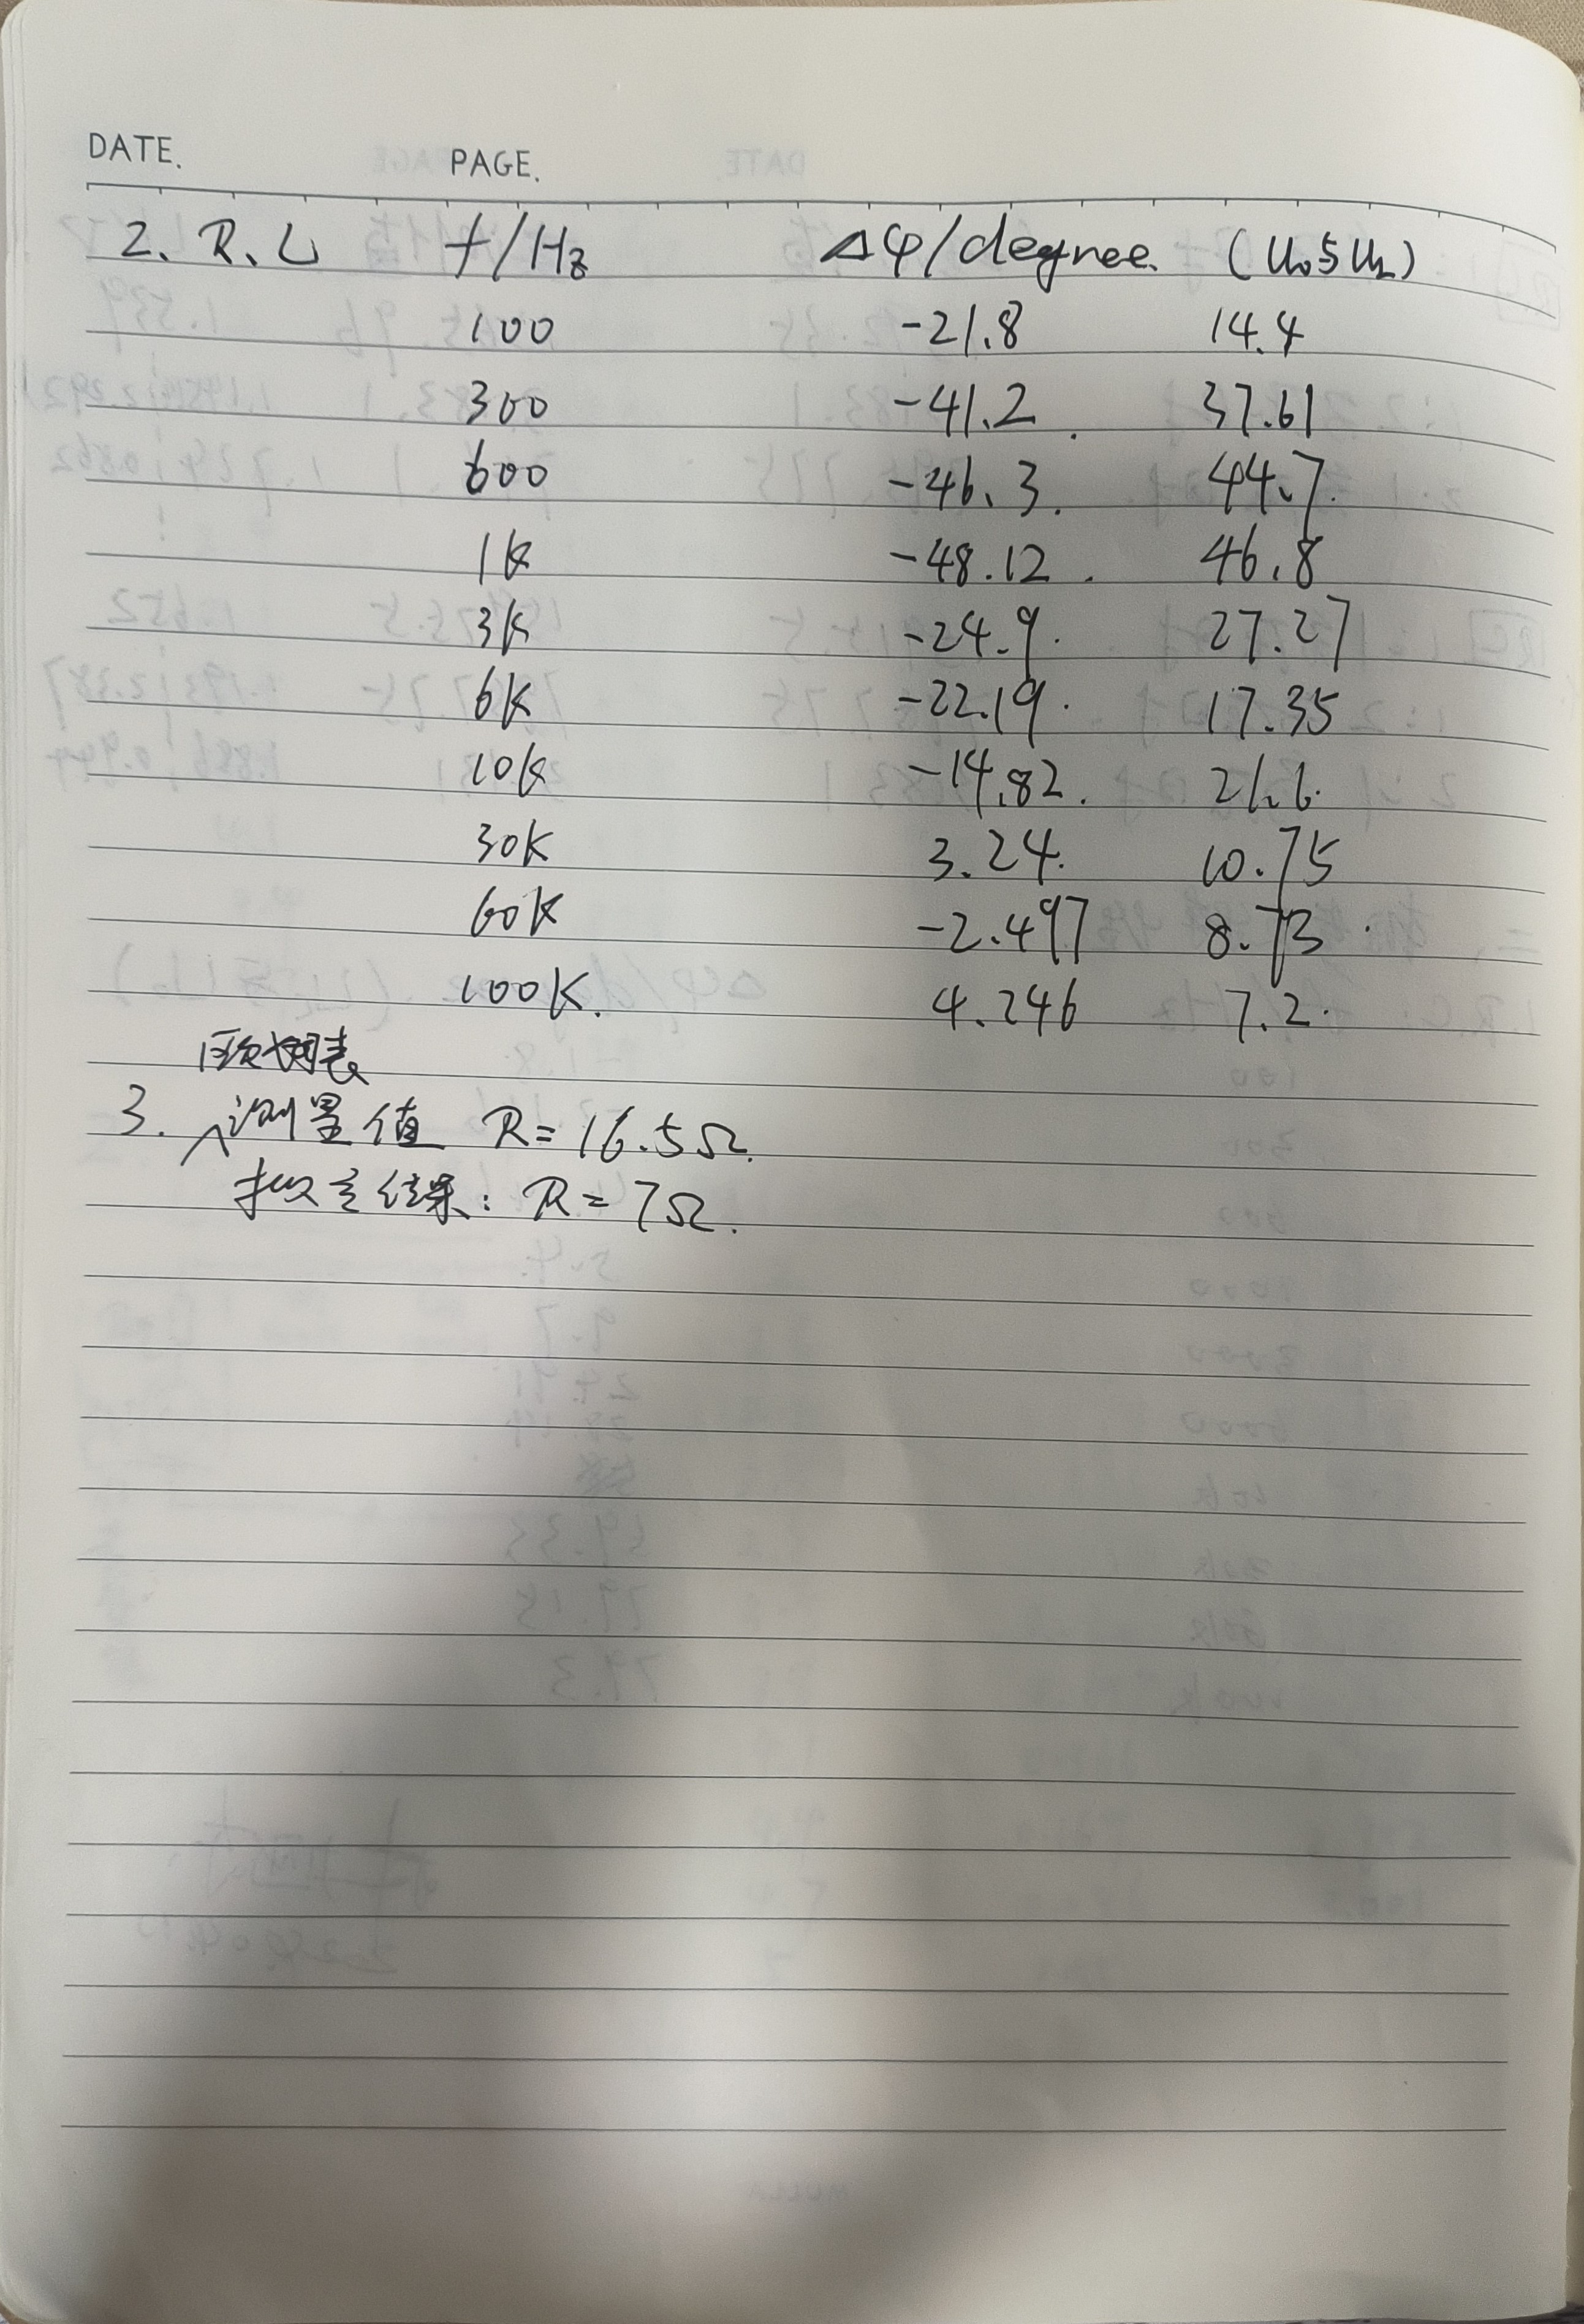 DATE. PAGE.
2. R.L f/Hz Δφ/degree. (U₀与U_L)
100 -21.8 14.4
300 -41.2 37.61
600 -46.3. 44.7.
1k -48.12. 46.8
3k -24.9. 27.27
6k -22.19. 17.35
10k -14.82. 21.6.
30k 3.24. 10.75
60k -2.497 8.73.
100K. 4.246 7.2.
3. 测量值 R=16.5Ω.
拟合结果: R=7Ω.